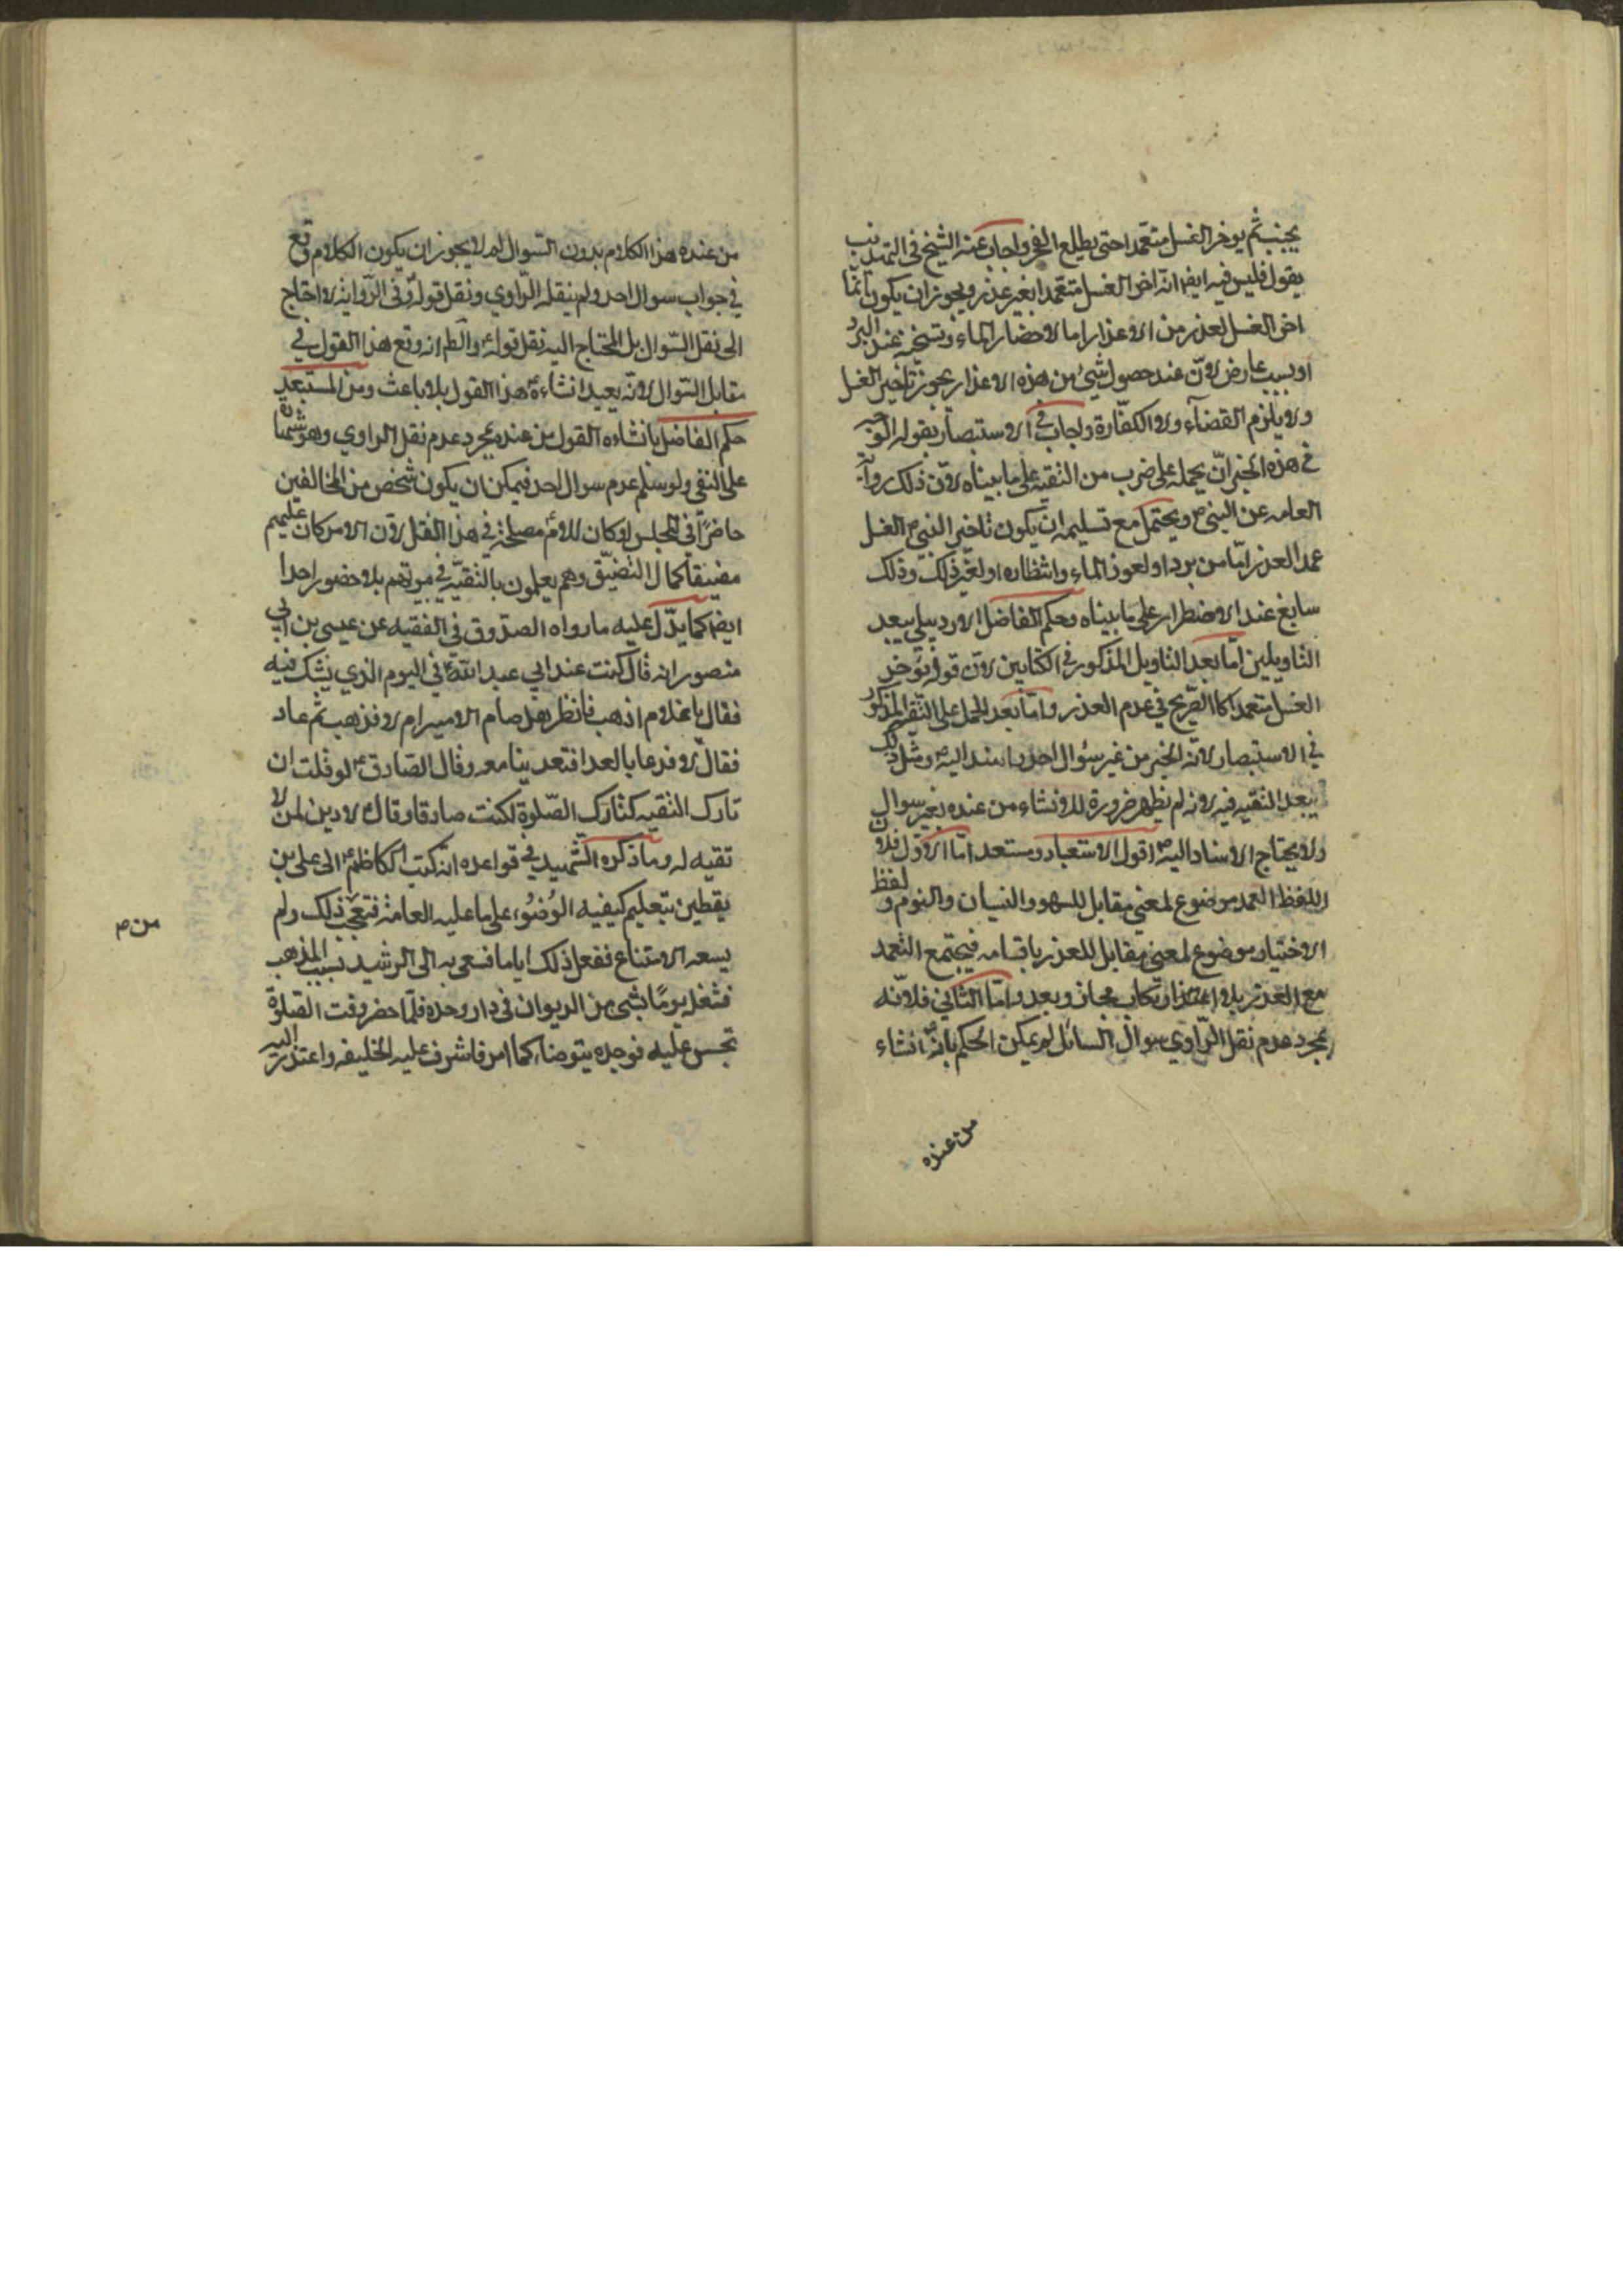 يجنب ثم يوخر الغسل متعمدا حتى يطلع الفجر واجاب عنه الشيخ في التهذيب
يقول فليس فيه ايضا انه اخر الغسل متعمدا بغير عذر ويجوز ان يكون انما
اخر الغسل لعذر من الاعذار اما لاحضار الماء وتسخينه عند البرد
او بسبب عارض لان عند حصول شيء من هذه الاعذار يجوز تاخير الغسل
ولا يلزم القضاء ولا الكفارة واجاب في الاستبصار بقوله الوجه
في هذه الخبر ان يحمله على ضرب من التقية على ما بيناه لان ذلك رواية
العامه عن النبي ص ويحتمل مع تسليمه ان يكون تاخير النبي ص الغسل
عمدا لعذر اما من برد او لعوز الماء وانتظاره او لغير ذلك وذلك
سايغ عند الاضطرار على ما بيناه وحكم الفاضل الاردبيلي ببعد
التاويلين اما بعد التاويل المذكور في الكتابين لان قوله يؤخر
الغسل متعمدا كالصريح في عدم العذر واما بعد الحمل على التقية المذكور
في الاستبصار لانه الخبر من غير سؤال احد بل اسند اليه ص ومثل ذلك
يبعد التقيه فيه لانه لم يظهر ضرورة للانشاء من عنده بغير سوال
ولا يحتاج الاسناد اليه ص اقول الاستبعاد مستبعد اما الاول فلان
اللفظ العمد موضوع لمعنى مقابل للسهو والنسيان والنوم ولفظ
الاختيار موضوع لمعنى مقابل للعذر باقسامه فيجتمع التعمد
مع العذر بلا ارتكاب مجاز وبعد واما الثاني فلانه
بمجرد عدم نقل الراوي سوال السائل لم يمكن الحكم بانه انشاء
من عنده
من عنده هذا الكلام بدون السوال لم لا يجوز ان يكون الكلام وقع
في جواب سوال احد ولم ينقله الراوي ونقل قوله وفي الرواية لا احتاج
الى نقل السوال بل المحتاج اليه نقل قوله والظم انه وقع هذا القول في
مقابل السوال لانه يعيد انشاءه هذا القول بلا باعث ومن المستبعد
حكم الفاضل بانشاءه القول من عنده بمجرد عدم نقل الراوي وهو شهادة
على النفي ولو سلم عدم سوال احد فيمكن ان يكون شخص من المخالفين
حاضرا في المجلس او كان للامام مصلحة في هذا النقل لان الامر كان عليهم
مضيقا كمال التضيق وهم يعلمون بالتقية في بيوتهم بلا حضور احد
ايضا كما يدل عليه ما رواه الصدوق في الفقيه عن عيسى بن ابي
منصور انه قال كنت عند ابي عبد الله ع في اليوم الذي يشك فيه
فقال يا غلام اذهب فانظر هل صام الامير ام لا فذهب ثم عاد
فقال لا فدعا بالغدا فتغدينا معه وقال الصادق ع لو قلت ان
تارك التقيه كتارك الصلوة لكنت صادقا وقال ع لا دين لمن لا
تقيه له وما ذكره الشهيد في قواعده انه كتب الكاظم ع الى علي بن
يقطين بتعليم كيفيه الوضوء على ما عليه العامة فتعجب ذلك ولم
من ص
يسعه الامتناع ففعل ذلك اياما فسعى به الى الرشيد بسبب المذهب
فشغله يوما بشيء من الديوان في دار وحده فلما حضر وقت الصلوة
تجسس عليه فوجده يتوضا كما امر فاشرف عليه الخليفه واعتذر اليه